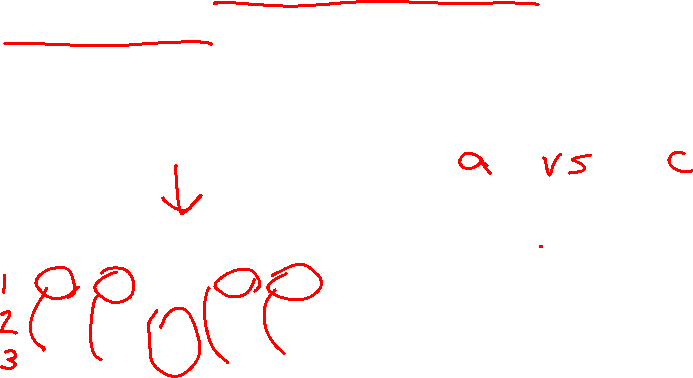 a vs c
1
2
3